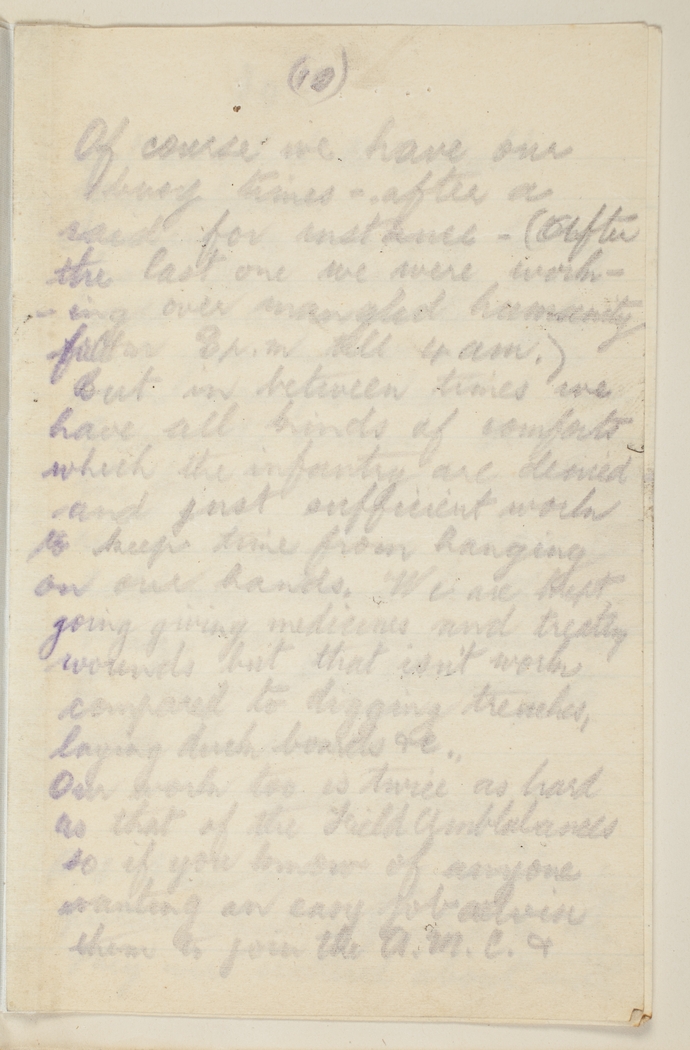 (10)
Of course we have our
busy times - after a
raid for instance - (After
the last one we were work-
-ing over mangled humanity
from 8 p.m till 4 am.)
But in between times we
have all kinds of comforts
which the infantry are denied
and just sufficient work
to keep time from hanging
on our hands. We are kept
going giving medicines and treating
wounds but that isn't work
compared to digging trenches,
laying duck boards &c.,
Our work too is twice as hard
as that of the Field Amblulances
so if you know of anyone
wanting an easy job advise
them to join the A.M.C. &